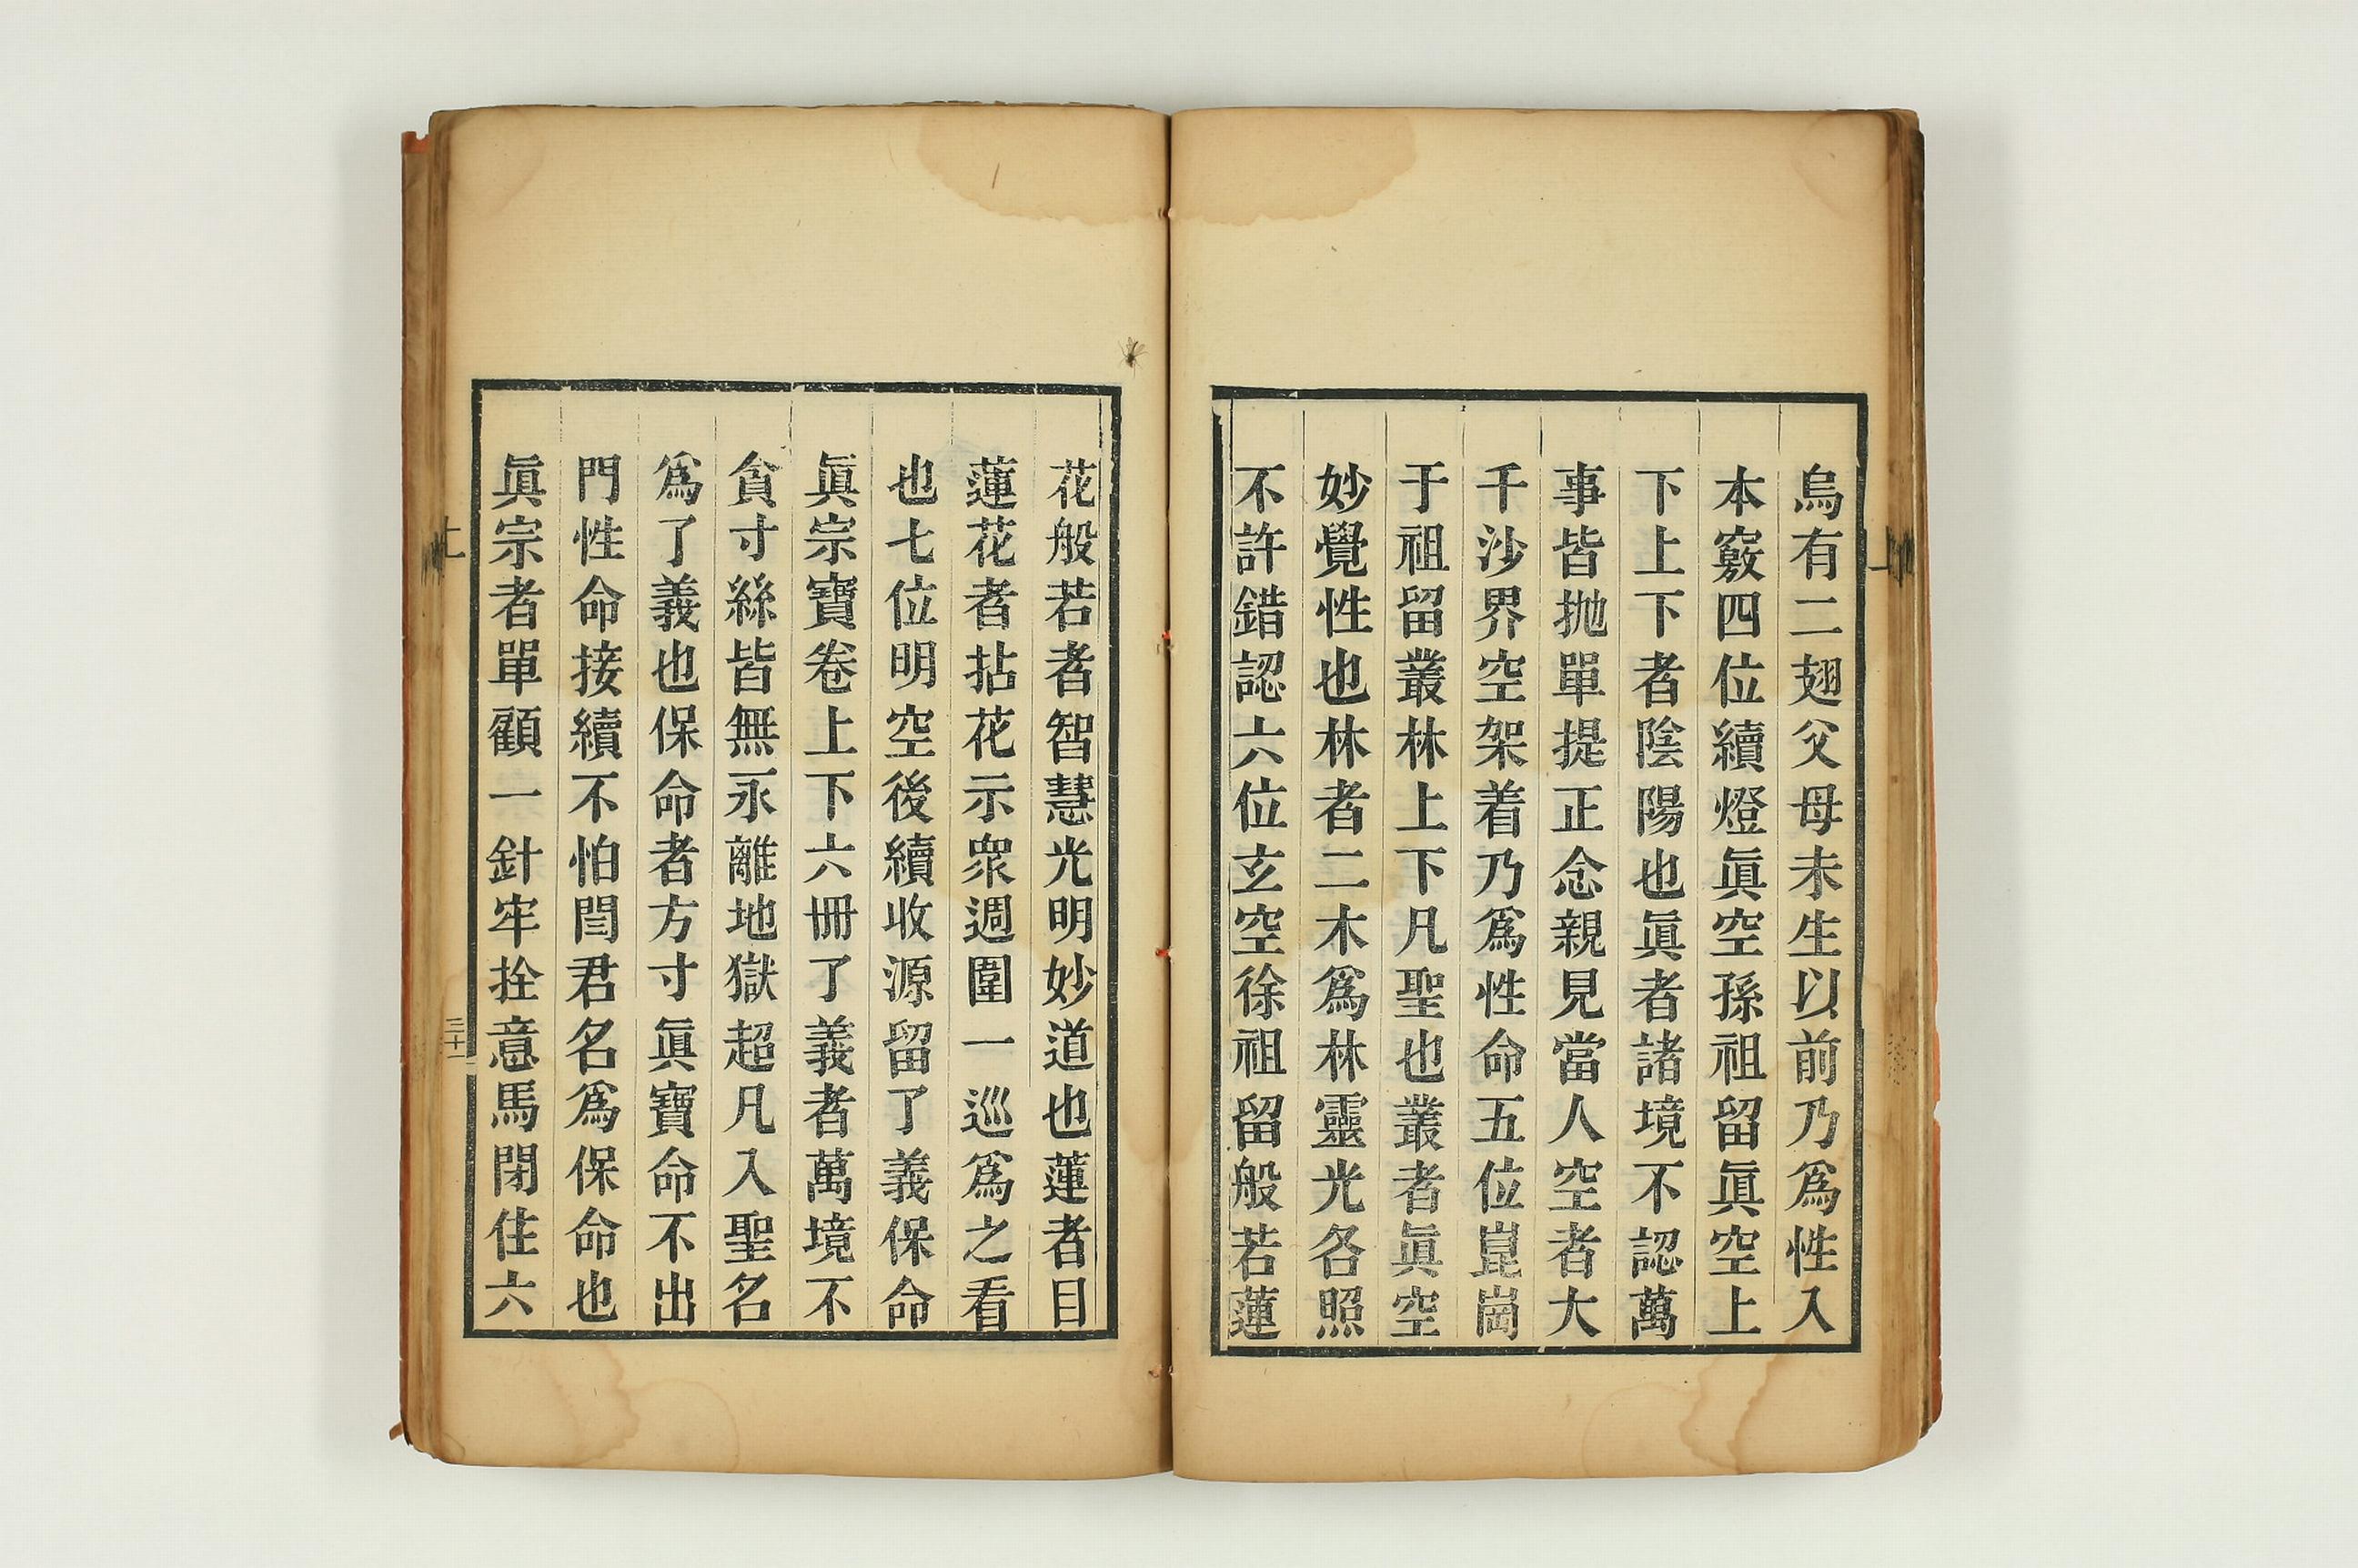 烏有二翅父母未生以前乃爲性入
本竅四位續燈眞空孫祖留眞空上
下上下者陰陽也眞者諸境不認萬
事皆抛單提正念親見當人空者大
千沙界空架着乃爲性命五位崑崗
于祖留叢林上下凡聖也叢者眞空
妙覺性也林者二木爲林靈光各照
不許錯認六位玄空徐祖留般若蓮
花般若者智慧光明妙道也蓮者目
蓮花者拈花示衆週圍一巡爲之看
也七位明空後續收源留了義保命
眞宗寶卷上下六冊了義者萬境不
貪寸絲皆無永離地獄超凡入聖名
爲了義也保命者方寸眞寶命不出
門性命接續不怕閆君名爲保命也
眞宗者單顧一針牢拴意馬閉住六
三十一